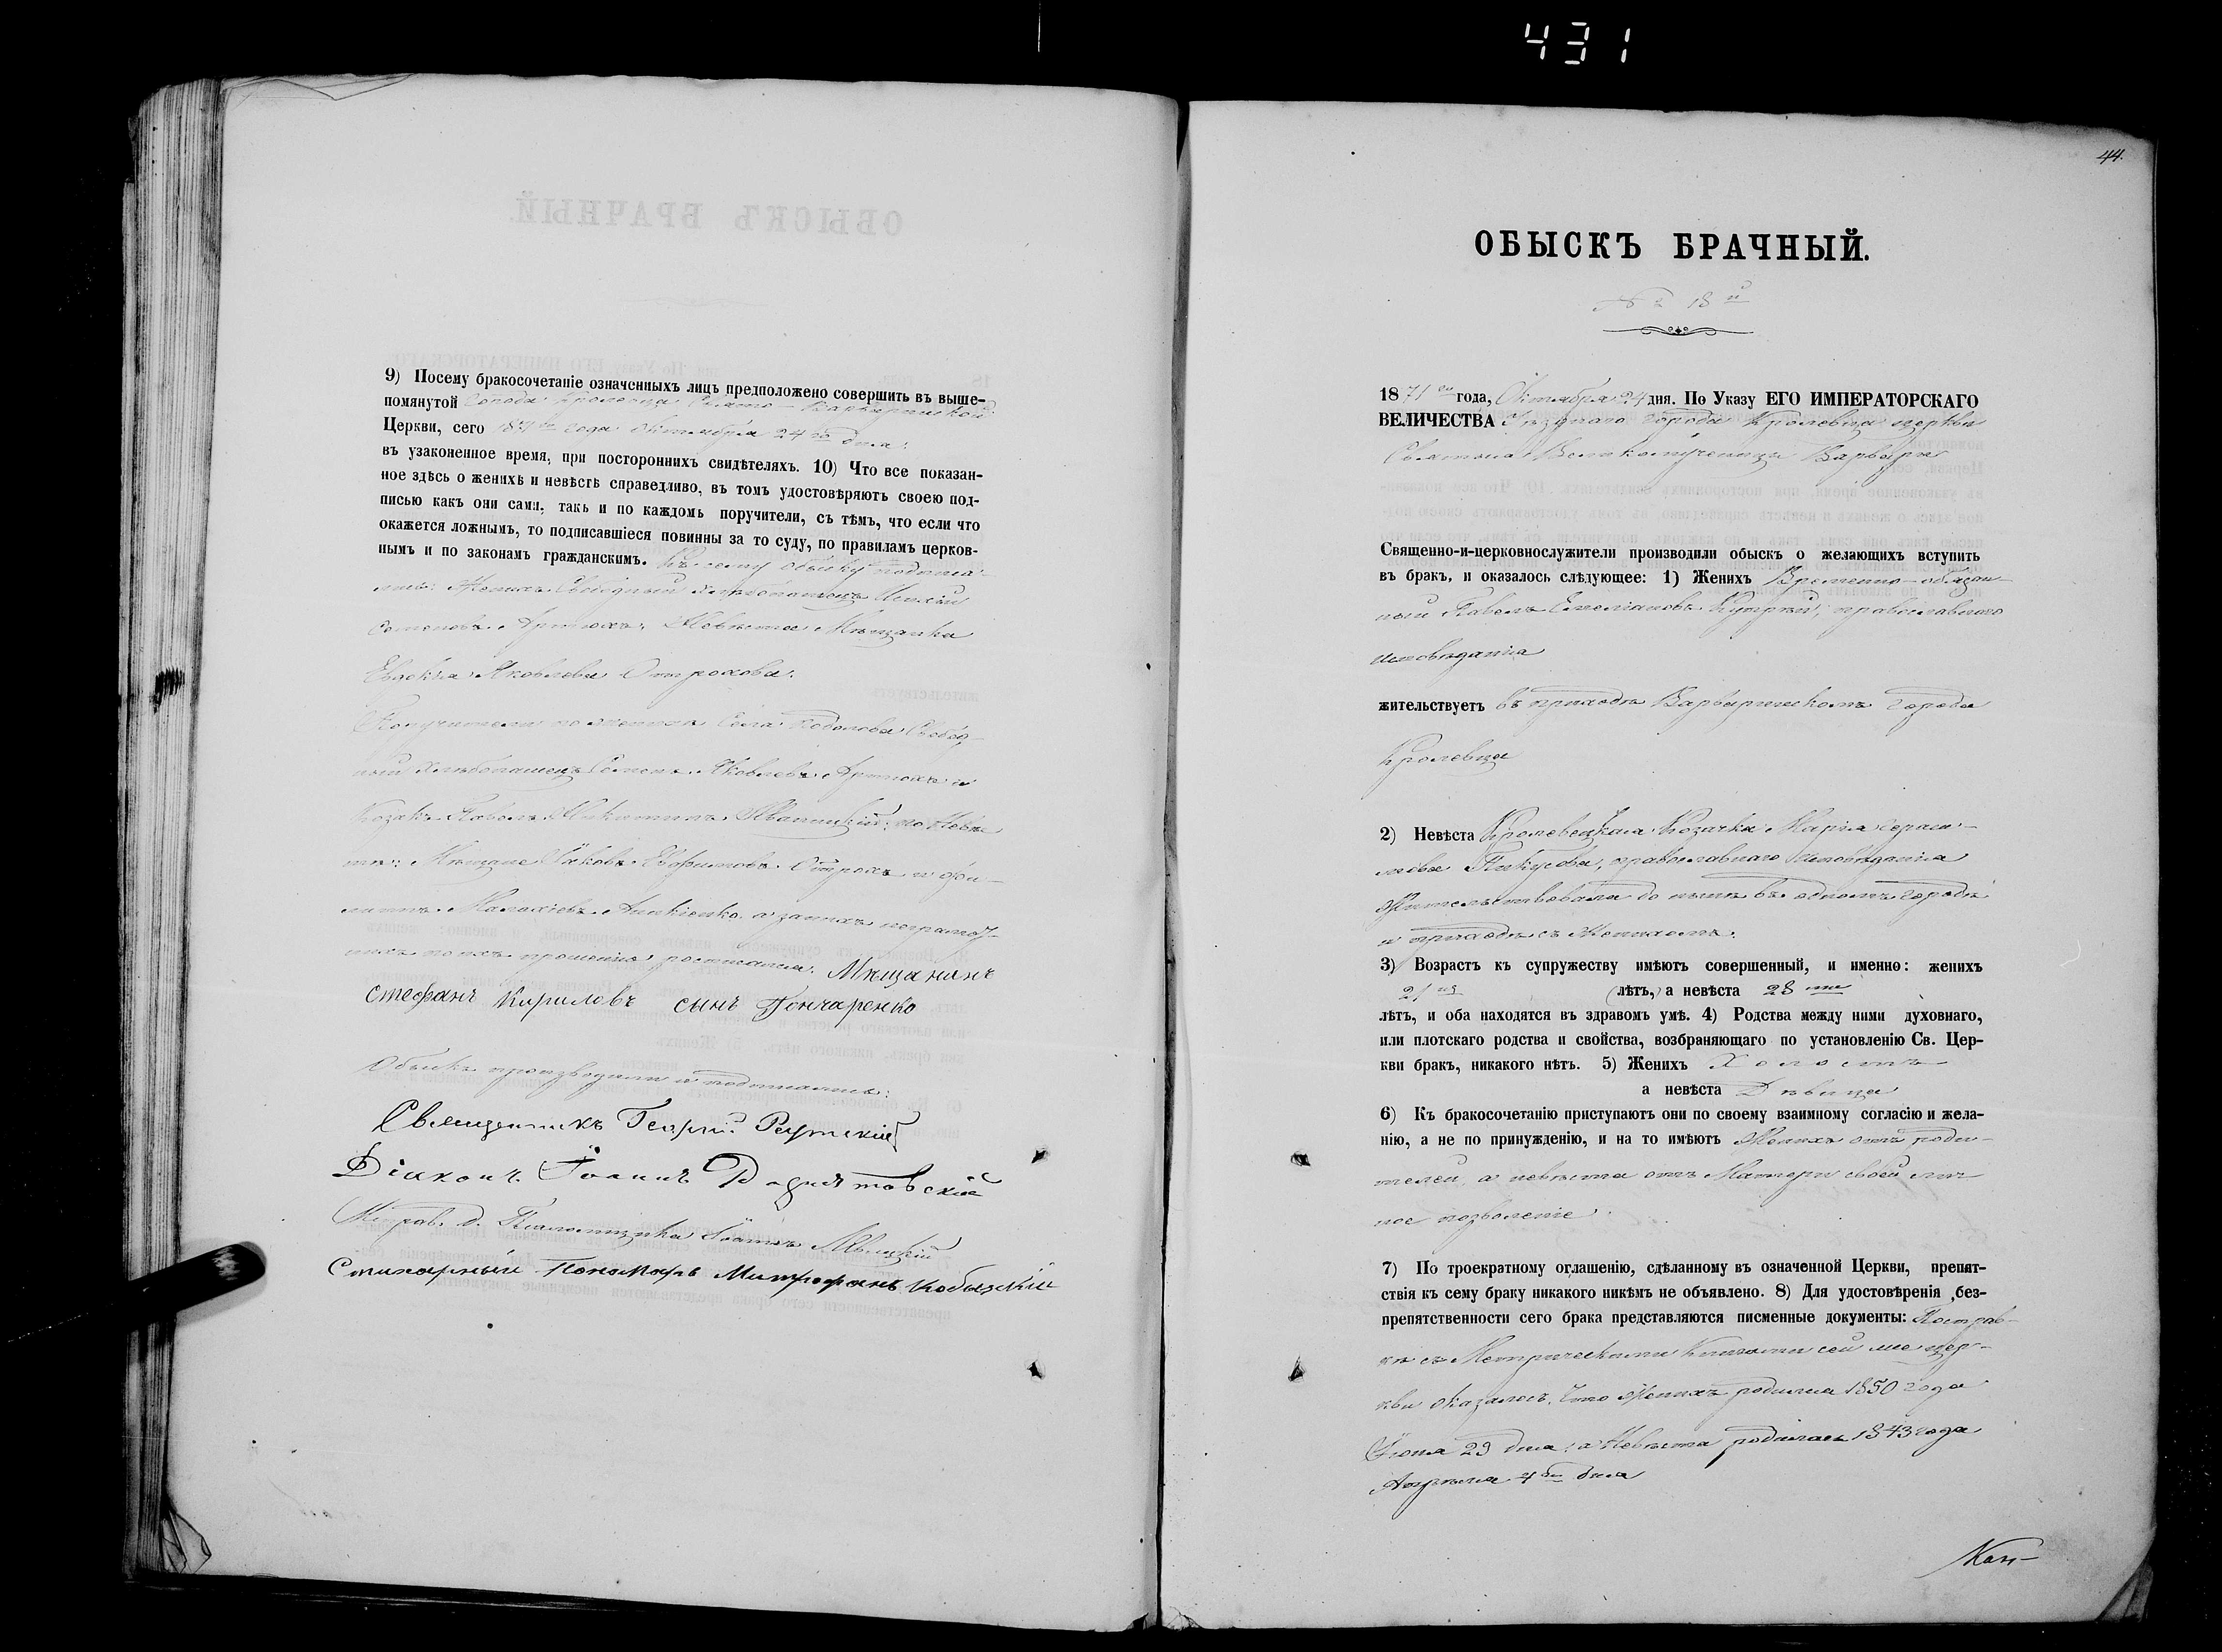 431
9) Посему бракосочетаніе означенныхъ лицъ предположено совершить въ выше-
помянутой города Кролевца Свято-Варваринской
Церкви, сего 1871го года Октября 24го дня.
въ узаконенное время, при постороннихъ свидѣтеляхъ. 10) Что все показан-
ное здѣсь о женихѣ и невѣстѣ справедливо, въ томъ удостовѣряютъ своею под-
писью какъ они сами, такъ и по каждомъ поручители, съ тѣмъ, что если что
окажется ложнымъ, то подписавшіеся повинны за то суду, по правиламъ церков-
нымъ и по законамъ гражданскимъ. Къ сему обыску подписа-
лись: Женихъ Свободный хлѣбопашецъ
Семеновъ Артюхъ; Невѣста Мѣщанка
Евдокія Яковлева Отрохова.
Поручители по женихѣ Села Подолова Свобод-
ный хлѣбопашецъ Семенъ Яковлевъ Артюхъ и
Козакъ Павелъ Никитинъ по Невѣ-
стѣ: Мѣщане Іаковъ Отрохъ и Фи-
липпъ а за нихъ неграмот-
ныхъ по ихъ прошенію росписался Мѣщанинъ
стефанъ Кириловъ сынъ Гончаренко
Обыскъ производили и подписались:
Священникъ Георгій Рутскій
Діаконъ Іоаннъ
Исправ. д. Псаломщика Іоаннъ
Стихарный Пономарь Митрофанъ
44.
ОБЫСКЪ БРАЧНЫЙ.
№ 18й
1871го года, Октября 24 дня. По Указу ЕГО ИМПЕРАТОРСКАГО
ВЕЛИЧЕСТВА Уѣзднаго города Кролевца церкви
Святыя Великомученицы Варвары
Священно-и-церковнослужители производили обыскъ о желающихъ вступить
въ бракъ, и оказалось слѣдующее: 1) Женихъ Временно-обязан-
ный Павелъ Емеліановъ православнаго
исповѣданія
жительствуетъ въ приходѣ Варваринскомъ города
Кролевца
2) Невѣста Кролевецкая Козачка Марія Гераси-
мова православнаго исповѣданія
жительствовала до нынѣ въ одномъ городѣ
и приходѣ съ Женихомъ.
3) Возрастъ къ супружеству имѣютъ совершенный, и именно: женихъ
21 лѣтъ, а невѣста 28ми
лѣтъ, и оба находятся въ здравомъ умѣ. 4) Родства между ними духовнаго,
или плотскаго родства и свойства, возбраняющаго по установленію Св. Цер-
кви бракъ, никакого нѣтъ. 5) Женихъ Холостъ
а невѣста Дѣвица
6) Къ бракосочетанію приступаютъ они по своему взаимному согласію и жела-
нію, а не по принужденію, и на то имѣютъ Женихъ отъ роди-
телей, а невѣста отъ Матери своей лич-
ное позволеніе.
7) По троекратному оглашенію, сдѣланному въ означенной Церкви, препят-
ствія къ сему браку никакого никѣмъ не объявлено. 8) Для удостовѣренія без-
препятственности сего брака представляются писменные документы: По справ-
кѣ съ Метрическими Книгами сей же цер-
кви оказалось, что Женихъ родился 1850 года
Іюня 29 дня; а Невѣста родилась 1843 года
Апрѣля 4го дня